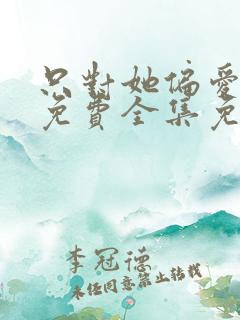 只對她偏愛
免費全集免
李冠德
未經同意禁止轉載